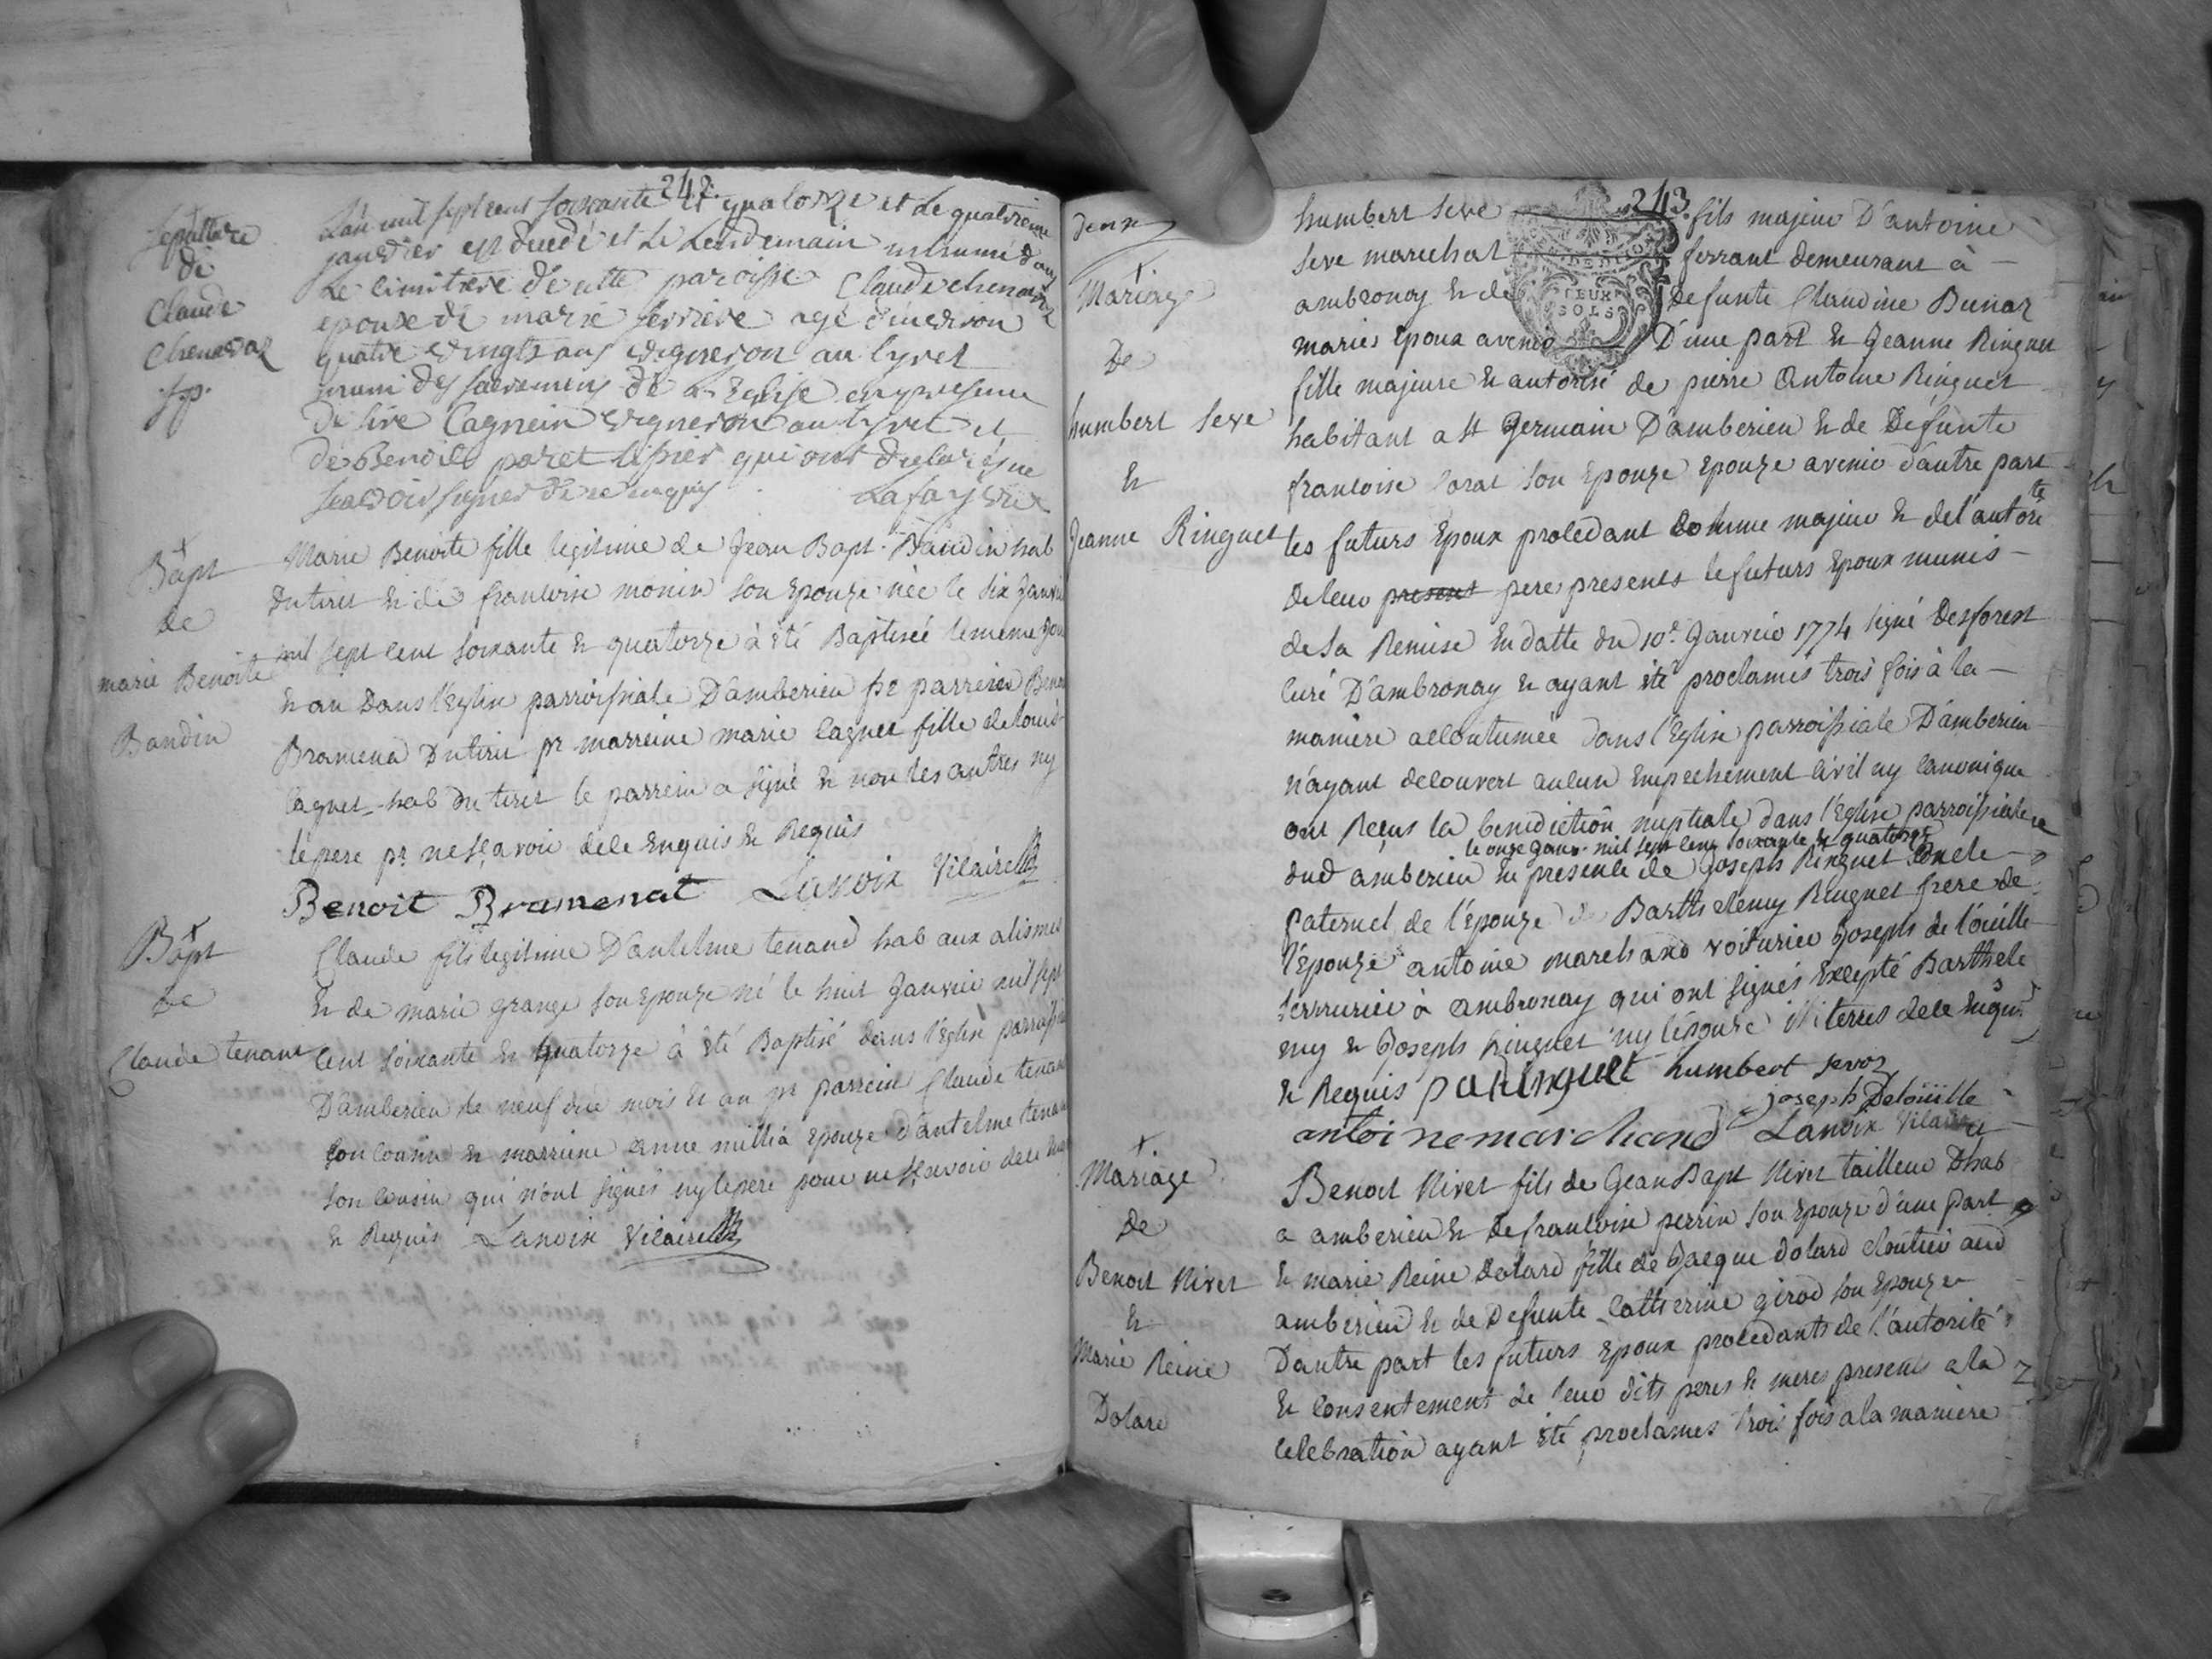 242.
Sepulture
de
Claude
Chenavaz
L'an mil sept cent soixante et quatorze et le quatrieme
janvier est decedé et le Lendemain inhumé dans
Le cimitiere de cette paroisse Claude chenavaz
epoux de marie ferriere agé d'environ
quatre vingts ans vigneron au tyret
muni des sacremens de L'Eglise en presence
de Cagnein vigneron au tyret et
de Benoit qui ont declaré ne
scavoir signer de ce enquis Lafay
Bapt
de
marie Benoite
Baudin
Marie Benoite fille legitime de Jean Bapt. Baudin hab
Du tiret & de francoise monin son Epouze née le six Janvier
mil sept cent soixante & quatorze à été Baptisée le meme jour
& an Dans l'Eglise parroissiale D'amberieu pr parrein Benoit
Bramena Du tiret pr marreine marie Cagnet fille de louis
Cagnet hab du tiret le parrein a signé & non les autres ny
le pere pr ne sçavoir de ce Enquis & Requis
Benoit Bramenat Lanoix Vicaire
Bapt
De
Claude tenant
Claude fils legitime D'antelme tenand hab aux alismes
& de marie grange son Epouze né le huit Janvier mil sept
Cent soixante & quatorze à été Baptisé dans l'Eglise parroissiale
D'amberieu le neuf du mois & an pr parrein Claude tenant
son Cousin & marreine anne millia Epouze d'antelme tenant
son Cousin qui n'ont signés ny le pere pour ne sçavoir de ce
& Requis Lanoix Vicaire
243.
deux
Mariage
De
humbert Seve
&
Jeanne Ringuet
humbert Seve fils majeur D'antoine
Seve marechal ferrant demeurant à
ambronay & de defunte Claudine Bunaz
mariés Epoux avenir D'une part & Jeanne Ringuet
DEUX
SOLS
fille majeure & autorisé de pierre Antoine Ringuet
habitant a St Germain D'amberieu & de Defunte
francoise son Epouze Epouze avenir d'autre part
les futurs Epoux procedant comme majeur & de l'autorité
de leur present pere presents le futurs Epoux munis
de sa Remise En datte du 10e Janvier 1774 signé Desforest
Curé D'ambronay & ayant été proclamés trois fois à la
maniere accoutumée dans l'Eglise parroissiale D'amberieu
n'ayant decouvert aucun Empechement Civil ny Canonique
ont Reçus la benediction nuptiale dans l'Eglise parroissiale
le onze Janv. mil sept cent soixante & quatorze
dud amberieu En presence de Joseph Ringuet Oncle
paternel de l'épouze Barthelemy Ringuet frere de
l'Epouze antoine marchand voiturier Joseph de l'oüille
serrurier à ambronay qui ont signés Excepté Barthele
my & Joseph Ringuet ny l'épouze illiterres de ce Enquis
& Requis P a Ringuet humbert sevoz
joseph Delouille
antoine marchand Lanoix Vicaire
Mariage
De
Benoit Niret
&
Marie Reine
Dolard
Benoit Niret fils de Jean Bapt Niret tailleur D'hab
a amberieu & de francoise perrin son Epouze d'une part
& marie Reine Dolard fille de Jacque Dolard cloutier aud
amberieu & de Defunte Catherine girod son Epouze
D'autre part les futurs Epoux procedants de l'autorité
& Consentement de leur dits peres & meres presents a la
celebration ayant été proclames trois fois a la maniere